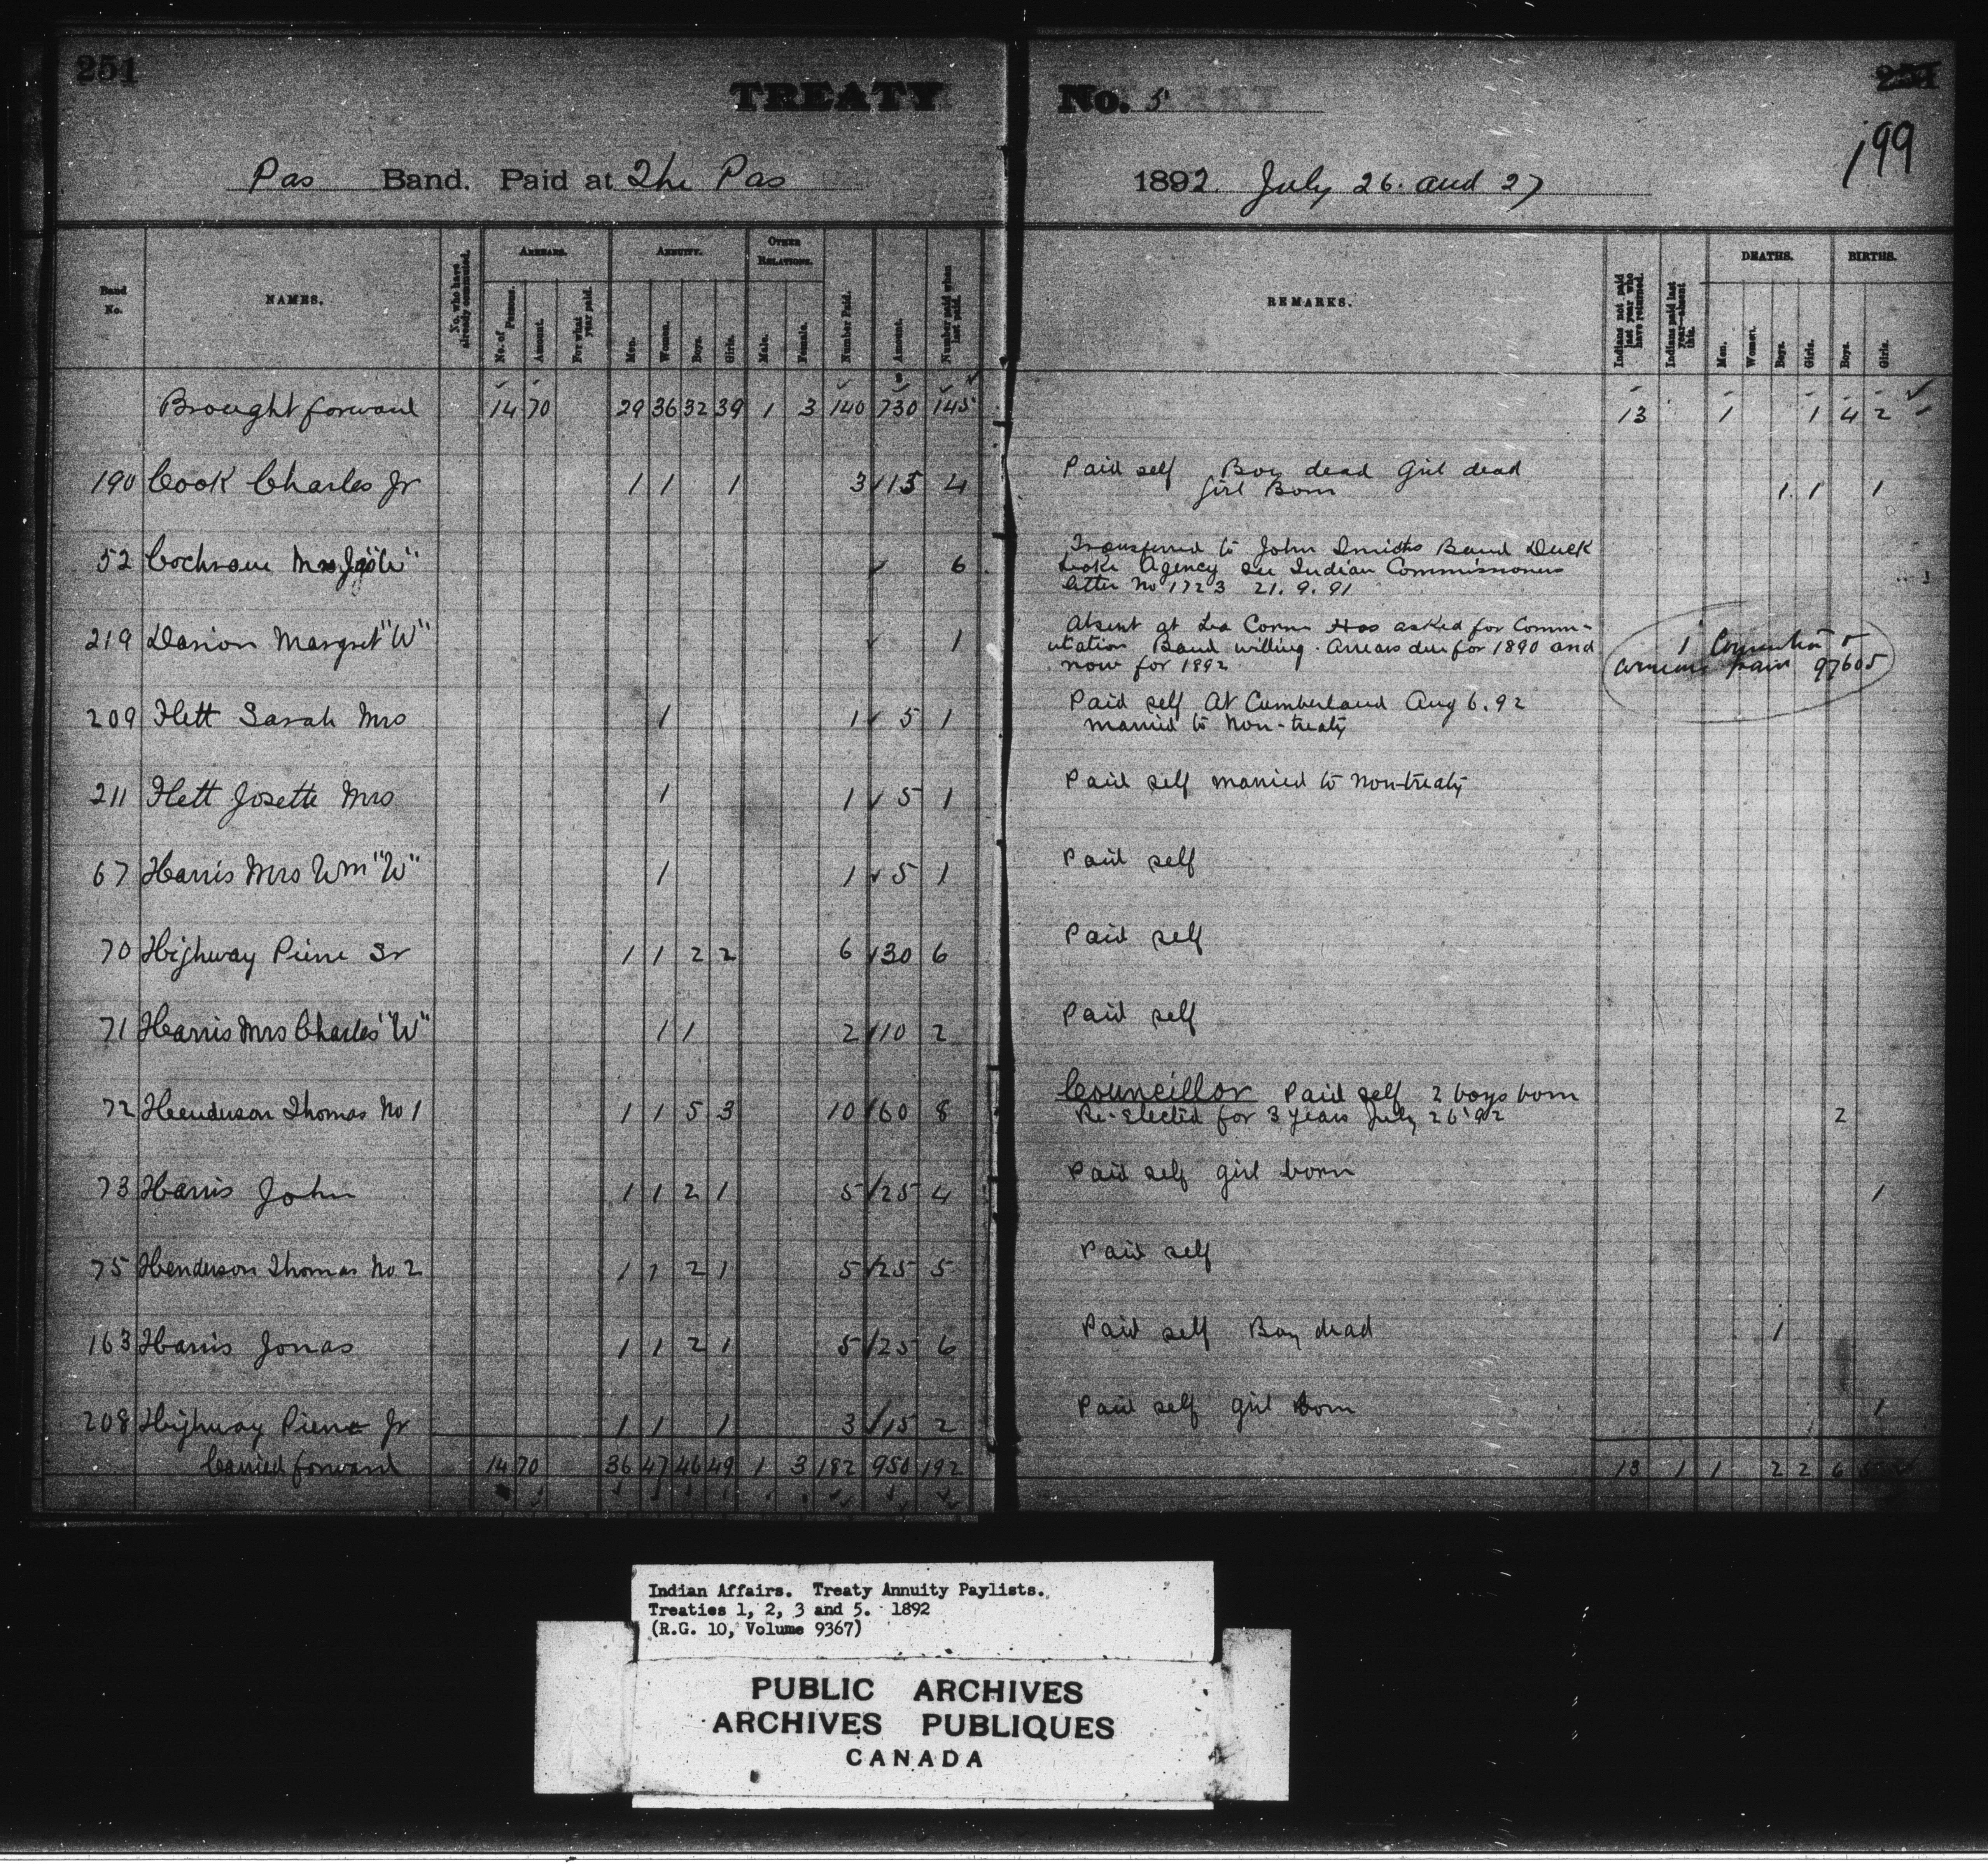 251
TREATY No. 5
251
199
Pas Band. Paid at The Pas 1892 July 26. and 27
Band No. NAMES. No. who have already commuted. ARREARS. No. of Persons. Amount. For what year paid. ANNUITY. Men. Women. Boys. Girls. OTHER RELATIONS. Male. Female. Number Paid. Amount. Number paid when last paid.
REMARKS. Indians not paid last year who have returned. Indians paid last year—absent this. DEATHS. Men. Women. Boys. Girls. BIRTHS. Boys. Girls.
Brought forward 14 70 29 36 32 39 1 3 140 730 145 13 1 1 4 2
190 Cook Charles Jr 1 1 1 3 15 4 Paid self Boy dead Girl dead
Girl Born 1 1 1
52 Cochrane Mrs "W" 6 Transferred to John Smiths Band Duck
Lake Agency See Indian Commissioners
letter No 1723 21.9.91
219 Margret "W" 1 Absent at La Corne Has asked for Comm-
utation Band willing. Arrears due for 1890 and
now for 1892
1
arrears paid 97605
209 Flett Sarah Mrs 1 1 5 1 Paid self At Cumberland Aug 6. 92
married to Non-treaty
211 Flett Josette Mrs 1 1 5 1 Paid self married to Non-treaty
67 Harris Mrs Wm "W" 1 1 5 1 Paid self
70 Highway Pierre Sr 1 1 2 2 6 30 6 Paid self
71 Harris Mrs Charles "W" 1 1 2 10 2 Paid self
72 Henderson Thomas No 1 1 1 5 3 10 60 8 Councillor Paid self 2 boys born
Re-Elected for 3 years July 26 '92 2
73 Harris John 1 1 2 1 5 25 4 Paid self girl born 1
75 Henderson Thomas No. 2 1 1 2 1 5 25 5 Paid self
163 Harris Jonas 1 1 2 1 5 25 6 Paid self Boy dead 1
208 Highway Pierre Jr 1 1 1 3 15 2 Paid self girl born 1
Carried forward 14 70 36 47 46 49 1 3 182 950 192 13 1 1 2 2 6
Indian Affairs. Treaty Annuity Paylists.
Treaties 1, 2, 3 and 5. 1892
(R.G. 10, Volume 9367)
PUBLIC ARCHIVES
ARCHIVES PUBLIQUES
CANADA